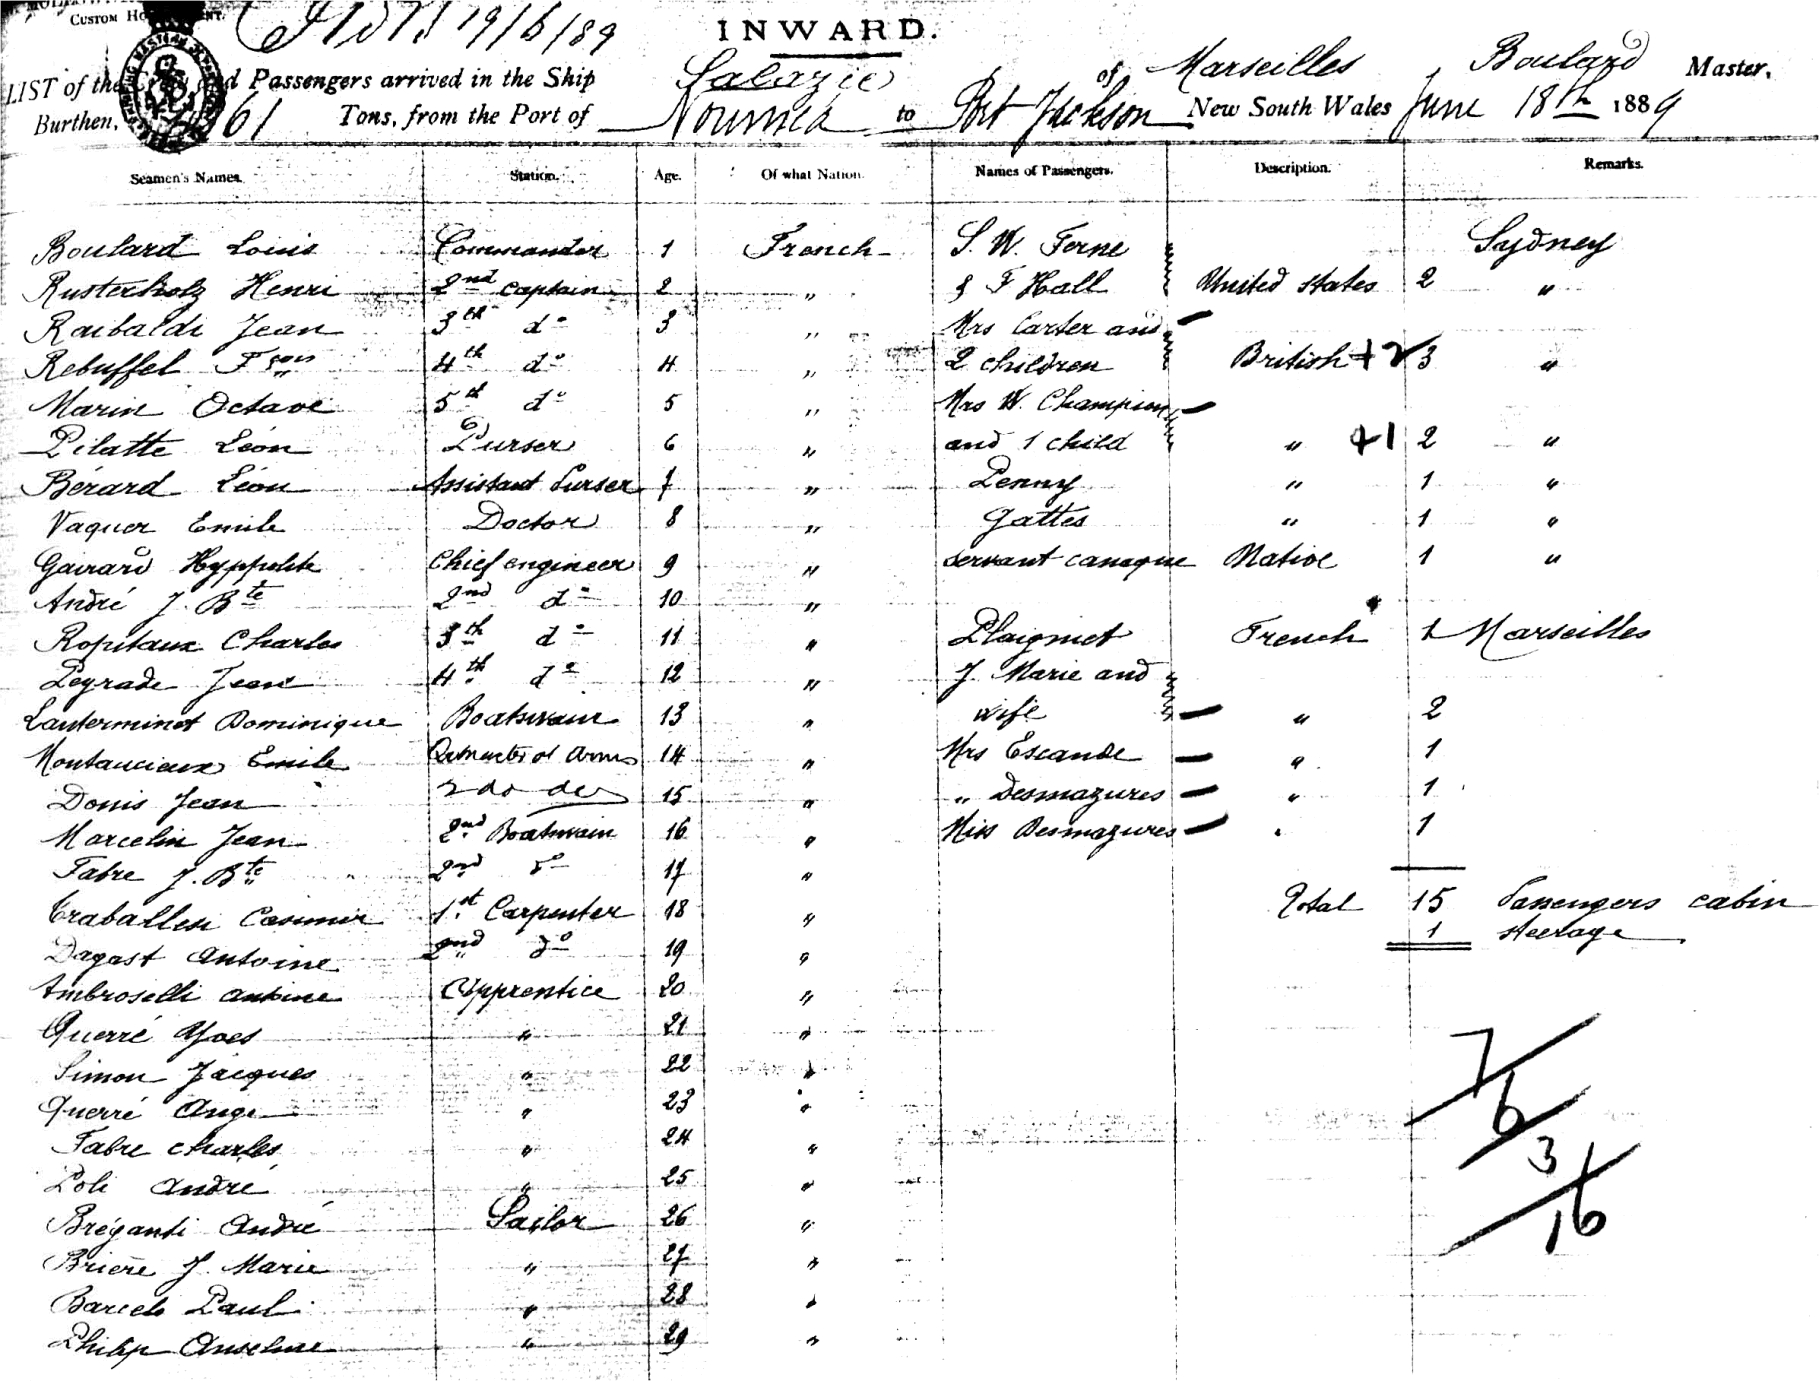 CUSTOM HO
19/6/89
INWARD.
LIST of the Crew and Passengers arrived in the Ship Salazie of Marseilles Boulard Master,
Burthen, 61 Tons, from the Port of Noumea to Port Jackson New South Wales June 18th 1889
Seamen's Names. Station. Age. Of what Nation. Names of Passengers. Description. Remarks.
Boulard Louis Commander 1 French S. W. Ferne Sydney
Rusterholz Henri 2nd Captain 2 " & F Hall United States 2 "
Raibaldi Jean 3th do 3 " Mrs Carter and
Rebuffel Fçois 4th do 4 " 2 children British +2 3 "
Marin Octave 5th do 5 " Mrs W. Champion
Pilatte Léon Purser 6 " and 1 child " +1 2 "
Bérard Léon Assistant Purser 7 " Penny " 1 "
Vaquer Emile Doctor 8 " Gattes " 1 "
Gairard Hyppolite Chief engineer 9 " servant canaque Native 1 "
André J. Bte 2nd do 10 "
Ropitaux Charles 3th do 11 " Plaignet French 1 Marseilles
Legrade Jean 4th do 12 " J. Marie and
Lanterminot Dominique Boatswain 13 " wife " 2
Montaucieux Emile Qrmaster of Arms 14 " Mrs Escande " 1
Donis Jean 2 do do 15 " " Desmazures " 1
Marcelin Jean 2nd Boatswain 16 " Miss Desmazures " 1
Fabre J. Bte 2nd do 17 "
Craballesi Casimir 1st Carpenter 18 " Total 15 Passengers cabin
Dagast Antoine 2nd do 19 " 1 steerage
Ambroselli Antoine Apprentice 20 "
Querré Yves " 21 "
Simon Jacques " 22 "
Querré Ange " 23 "
Fabre Charles " 24 "
Poli André " 25 "
Bréganti André Sailor 26 "
Brière J. Marie " 27 "
Barcelo Paul " 28 "
Philip Anselme " 29 "
7
6
3
16